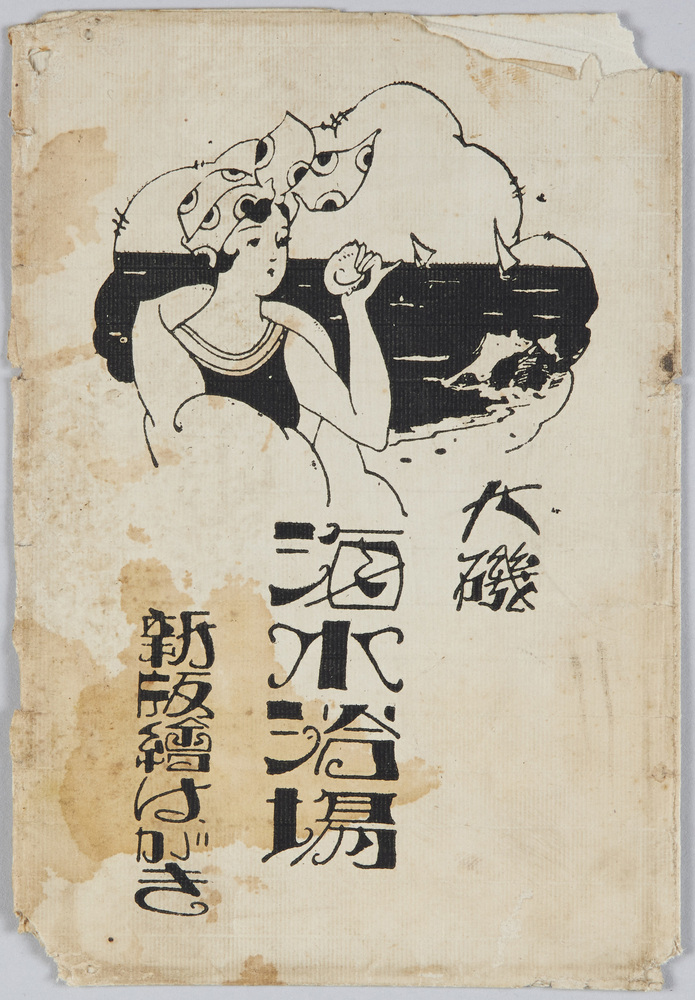 大磯
海水浴場
新版繪はがき